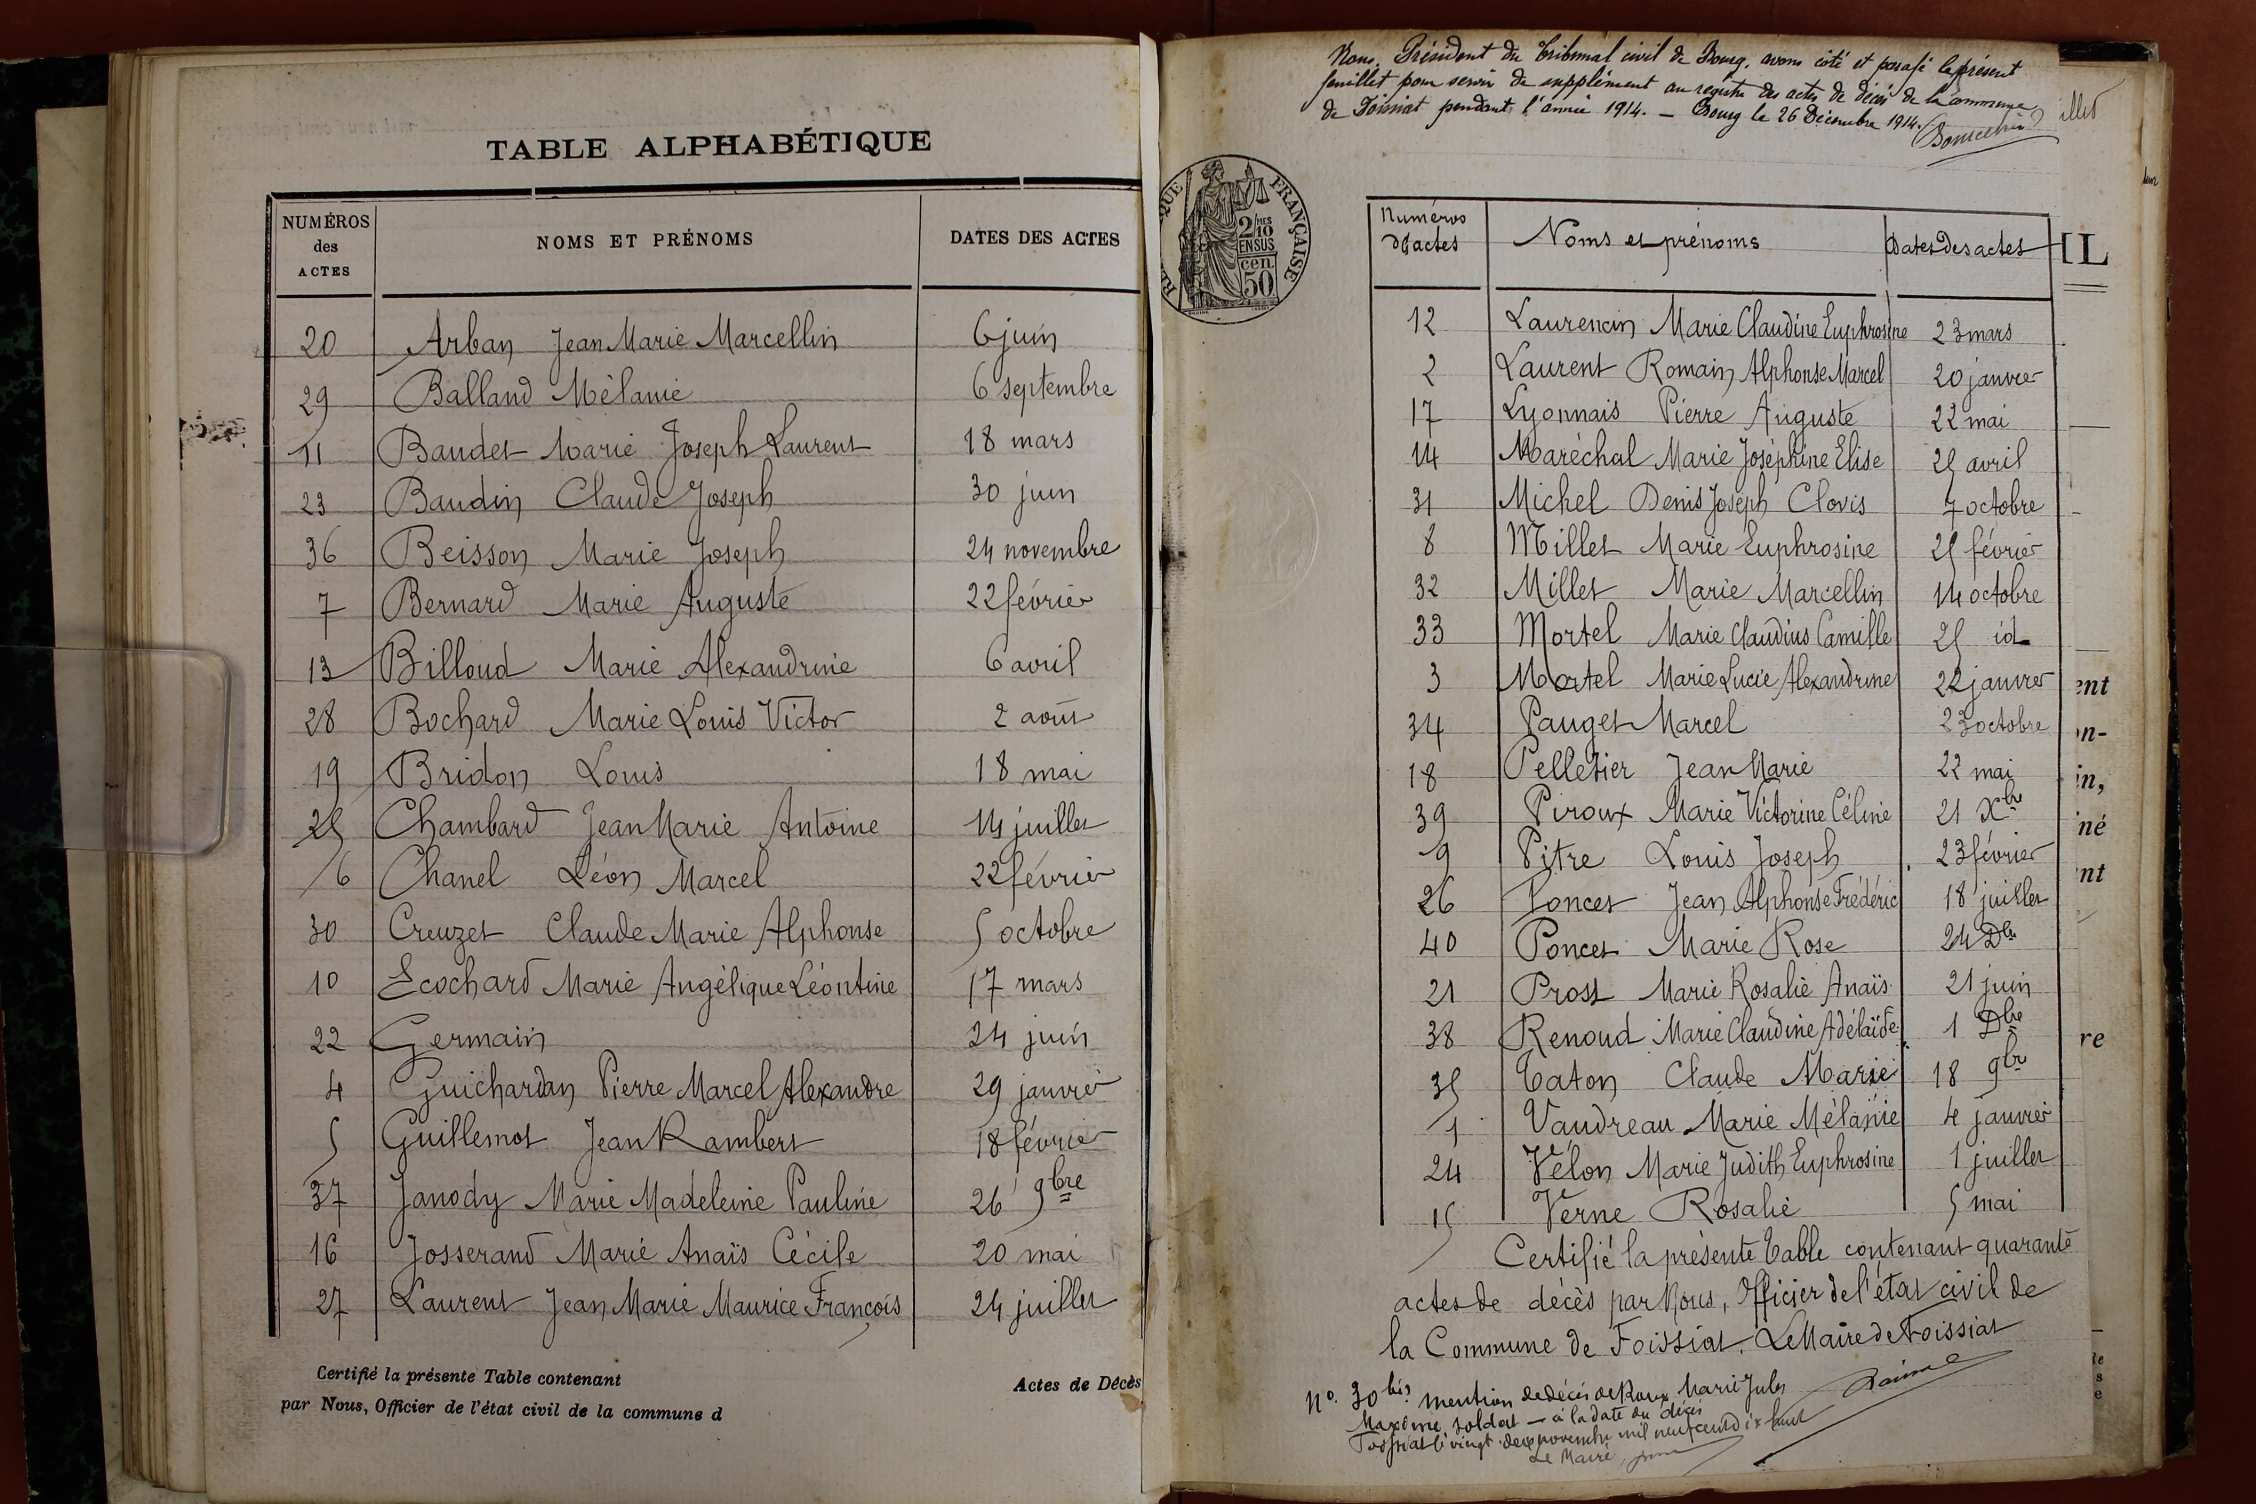 TABLE ALPHABÉTIQUE
NUMÉROS des ACTES NOMS ET PRÉNOMS DATES DES ACTES
20 Arban Jean Marie Marcellin 6 juin
29 Balland Mélanie 6 septembre
11 Baudet Marie Joseph Laurent 18 mars
23 Baudin Claude Joseph 30 juin
36 Beisson Marie Joseph 24 novembre
7 Bernard Marie Auguste 22 février
13 Billoud Marie Alexandrine 6 avril
28 Bochard Marie Louis Victor 2 août
19 Bridon Louis 18 mai
25 Chambard Jean Marie Antoine 14 juillet
6 Chanel Léon Marcel 22 février
30 Creuzet Claude Marie Alphonse 5 octobre
10 Ecochard Marie Angélique Léontine 17 mars
22 Germain 24 juin
4 Guichardan Pierre Marcel Alexandre 29 janvier
5 Guillemot Jean Rambert 18 février
37 Janody Marie Madeleine Pauline 26 9bre
16 Josserand Marie Anaïs Cécile 20 mai
27 Laurent Jean Marie Maurice François 24 juillet
Certifié la présente Table contenant Actes de Décès
par Nous, Officier de l'état civil de la commune d
Nous, Président du Tribunal civil de Bourg, avons côté et parafé le présent
feuillet pour servir de supplément au registre des actes de décès de la commune
de Foissiat pendant l'année 1914. — Bourg le 26 Décembre 1914.
RÉPUBLIQUE FRANÇAISE
2/10 MES
EN SUS
50 cen.
Numéros d'actes Noms et prénoms Dates des actes
12 Laurencin Marie Claudine Euphrosine 23 mars
2 Laurent Romain Alphonse Marcel 20 janvier
17 Lyonnais Pierre Auguste 22 mai
14 Maréchal Marie Joséphine Elise 25 avril
31 Michel Denis Joseph Clovis 7 octobre
8 Millet Marie Euphrosine 25 février
32 Millet Marie Marcellin 14 octobre
33 Mortel Marie Claudius Camille 25 id
3 Mortel Marie Lucie Alexandrine 22 janvier
34 Pauget Marcel 23 octobre
18 Pelletier Jean Marie 22 mai
39 Piroux Marie Victorine Céline 21 Xbre
9 Pitre Louis Joseph 23 février
26 Poncet Jean Alphonse Frédéric 18 juillet
40 Poncet Marie Rose 24 Dbre
21 Prost Marie Rosalie Anaïs 21 juin
38 Renoud Marie Claudine Adélaïde 1 Dbre
35 Taton Claude Marie 18 9bre
1 Vaudreau Marie Mélanie 4 janvier
24 Vélon Marie Judith Euphrosine 1 juillet
15 Verne Rosalie 5 mai
Certifié la présente Table contenant quarante
actes de décès par Nous, Officier de l'état civil de
la Commune de Foissiat. Le Maire de Foissiat
No. 30 bis mention de décès de Roux Marie Jules
Maxime, soldat — à la date du décès
Foissiat le vingt deux novembre mil neuf cent dix huit
Le Maire,